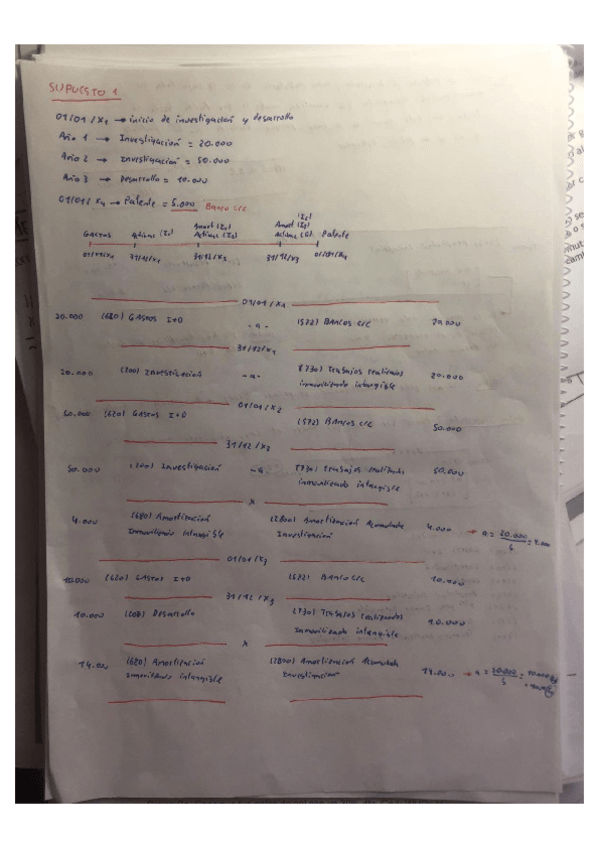 SUPUESTO 1
01/01/X1 → inicio de investigación y desarrollo
Año 1 → Investigación = 20.000
Año 2 → Investigación = 50.000
Año 3 → Desarrollo = 10.000
01/01/X4 → Patente = 5.000 Banco c/c
Gastos Activar (I1) Amort (I1) Activar (I2) Amort (I2) Activar (D) Patente
01/01/X1 31/12/X1 31/12/X2 31/12/X3 01/01/X4
01/01/X1
20.000 (620) GASTOS I+D -a- (572) BANCOS C/C 20.000
31/12/X1
20.000 (200) Investigación -a- (730) Trabajos realizados
inmovilizado intangible 20.000
01/01/X2
50.000 (620) GASTOS I+D (572) BANCOS C/C 50.000
31/12/X2
50.000 (200) Investigación -a- (730) Trabajos realizados
inmovilizado intangible 50.000
X
4.000 (680) Amortización (2800) Amortización Acumulada 4.000 → a = 20.000
Inmovilizado intangible Investigación 5 = 4.000
01/01/X3
10.000 (620) GASTOS I+D (572) BANCO C/C 10.000
31/12/X3
10.000 (201) Desarrollo (730) Trabajos realizados
Inmovilizado intangible 10.000
X
14.000 (680) Amortización (2800) Amortización Acumulada 14.000 → a = 50.000
Inmovilizado intangible Investigación 5